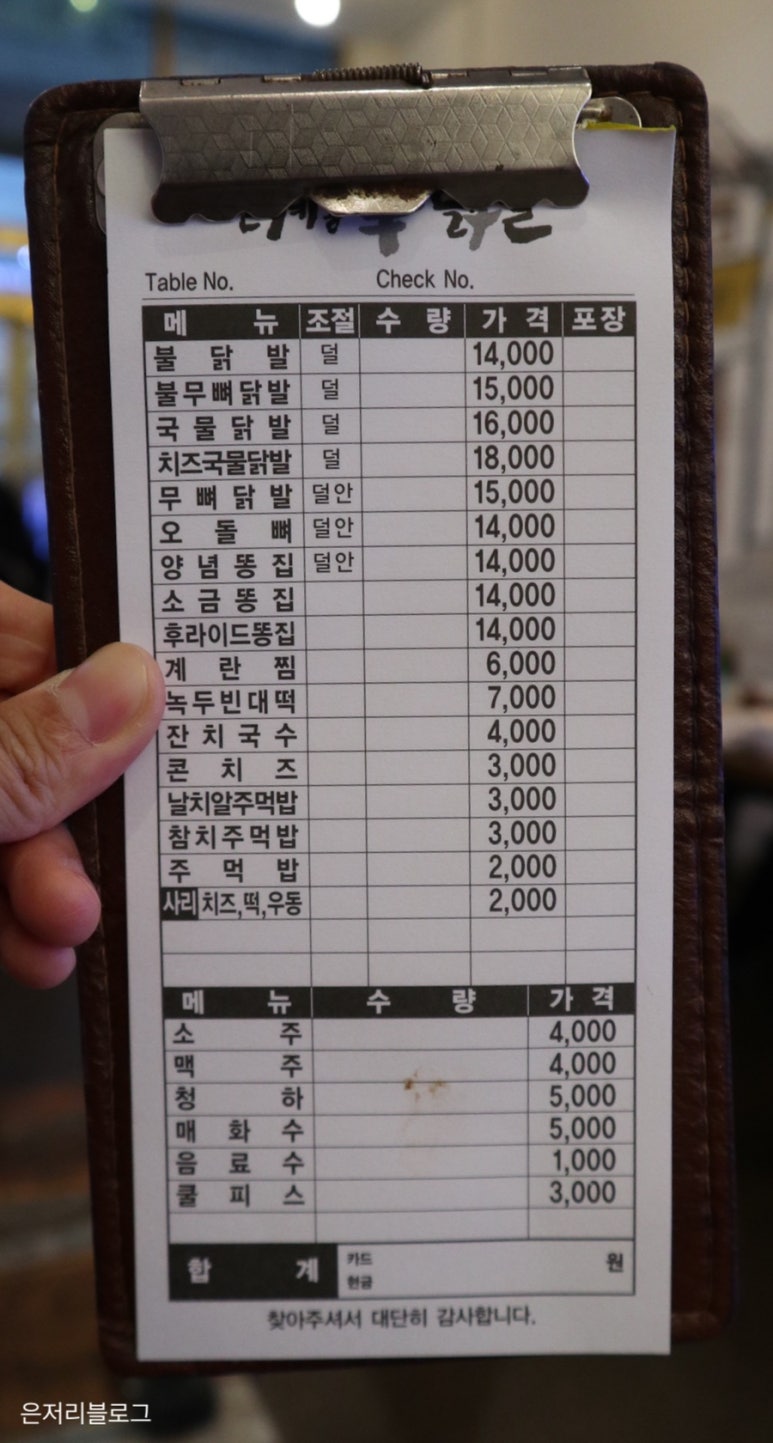 Table No. Check No.
메뉴 조절 수량 가격 포장
불닭발 덜 14,000
불무뼈닭발 덜 15,000
국물닭발 덜 16,000
치즈국물닭발 덜 18,000
무뼈닭발 덜안 15,000
오돌뼈 덜안 14,000
양념똥집 덜안 14,000
소금똥집 14,000
후라이드똥집 14,000
계란찜 6,000
녹두빈대떡 7,000
잔치국수 4,000
콘치즈 3,000
날치알주먹밥 3,000
참치주먹밥 3,000
주먹밥 2,000
사리 치즈,떡,우동 2,000
메뉴 수량 가격
소주 4,000
맥주 4,000
청하 5,000
매화수 5,000
음료수 1,000
쿨피스 3,000
합계 카드 원
현금
찾아주셔서 대단히 감사합니다.
은저리블로그